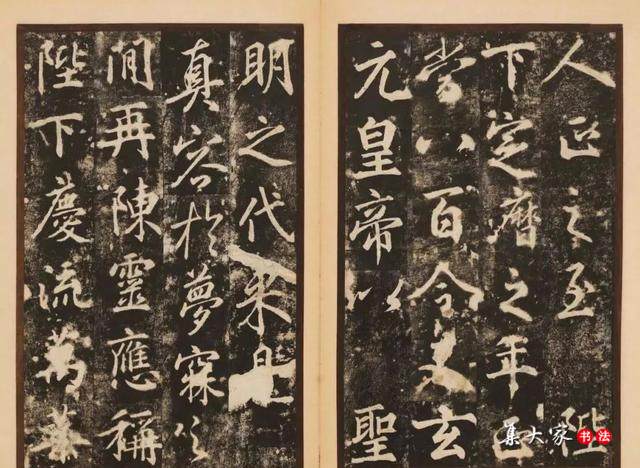 人臣之至陛
下定曆之年
當八百今又玄
元皇帝以聖
明之代來是
真容於夢寐之
間再陳靈應稱
陛下慶流萬葉
集大家 书法